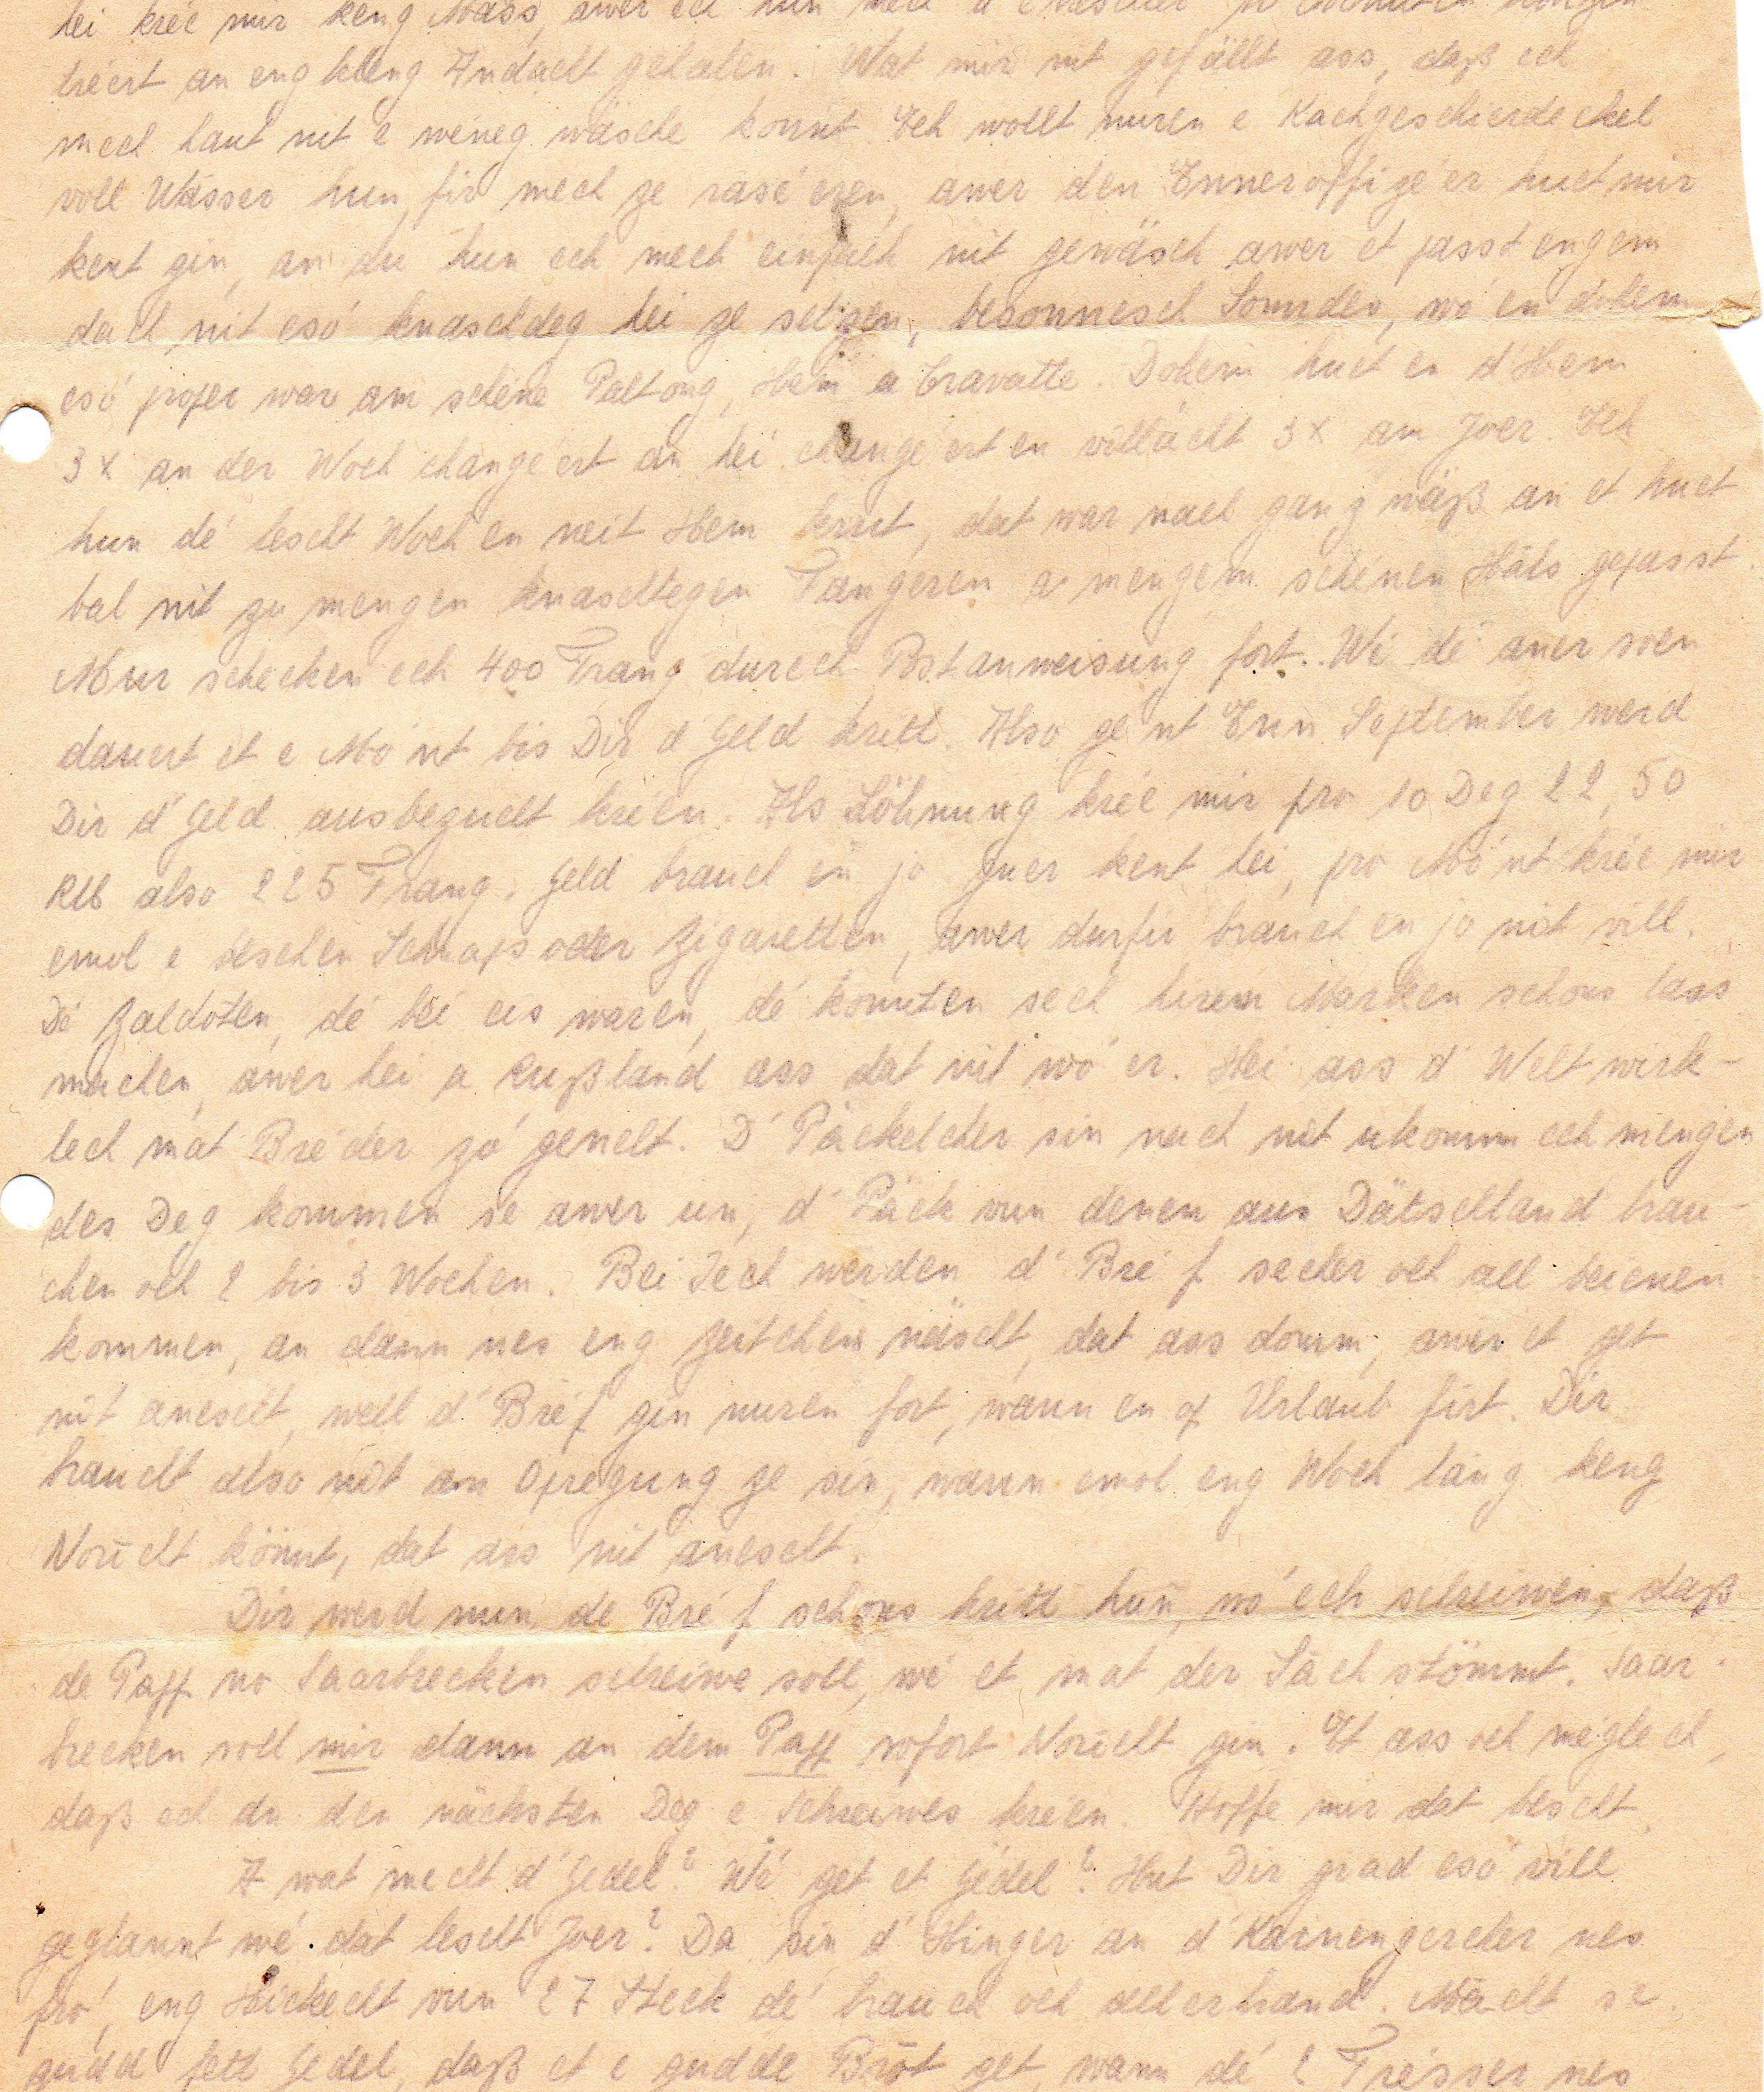 hei krée mir keng Mass, awer ech hun mech
héert an eng kleng Andacht gehalen. Wat mir nit gefällt ass, daß ech
mech haut nit e wéneg wäsche konnt. Ech wollt nuren e Kachgeschierdeckel
voll Wasser hun, fir mech ze raséeren, awer den Enneroffizéer huet mir
kent gin, an du hun ech mech einfach nit gewäsch awer et passt engem
dach nit esó knaschdeg hei ze setzen, besonnesch Sonndes, wó en dohem
esó proper war am schéne Paltong, Hem a Cravatte. Dohem huet en d'Hem
3x an der Woch changéert an hei changéert en villäicht 3x am Joer. Ech
hun dé lescht Woch en neit Hem krut, dat war nach ganz wäß an et huet
bal nit zu mengen knaschtegen Fangeren a mengem schénen Háls gepasst.
Mur schecken ech 400 Frang durech Postanweisung fort. Wé dé aner soen
dauert et e Mónt bis Dir d'Geld kritt. Also gént Enn September werd
Dir d'Geld ausbezuelt kréen. Als Löhnung krée mir pro 10 Deg 22,50
RM also 225 Frang. Geld brauch en jo guer kent hei, pro Mónt krée mir
emol e bëschen Schnaps oder Zigaretten, awer durfir brauch en jo nit vill.
Dé Zaldoten, dé bei eis waren, dé konnten sech hirem Marken schons lass
machen, awer hei a Rußland ass dat nit wóer. Hei ass d'Welt wirk-
lech mat Bréder zógenelt. D'Päckelcher sin nach net ukomm ech mengen
des Deg kommen se awer un, d'Päck vun denen aus Dätschland brau-
chen och 2 bis 3 Wochen. Bei Iech werden d'Bréf secher och all beienen
kommen, an dann nes eng Zeitchen näischt, dat ass domm, awer et get
nit anescht, well d'Bréf gin nuren fort, wann en op Urlaub firt. Dir
braucht also nit an Opregung ze sin, wann emol eng Woch läng keng
Noricht könnt, dat ass nit anescht.
Dir werd nun de Bréf schons kritt hun, wó ech schreiwen, daß
de Paff no Saarbrecken schreiwe soll, wé et mat der Sach stömmt. Saar-
brecken soll mir dann an dem Paff sofort Noricht gin. Et ass och méglech,
daß ech an den nächsten Deg e Schreiwes kréen. Hoffe mir dat bescht.
A wat mecht d'Gedel? Wé get et Gedel? Hut Dir grad esó vill
geplannt wé dat lescht Joer? Da sin d'Hinger an d'Karnengercher nes
fró, eng Héckecht vun 27 Steck dé brauch och allerhand. Mácht se
gudd fett Gedel, daß et e gudde Brót get, wann dé 2 Frésser nes